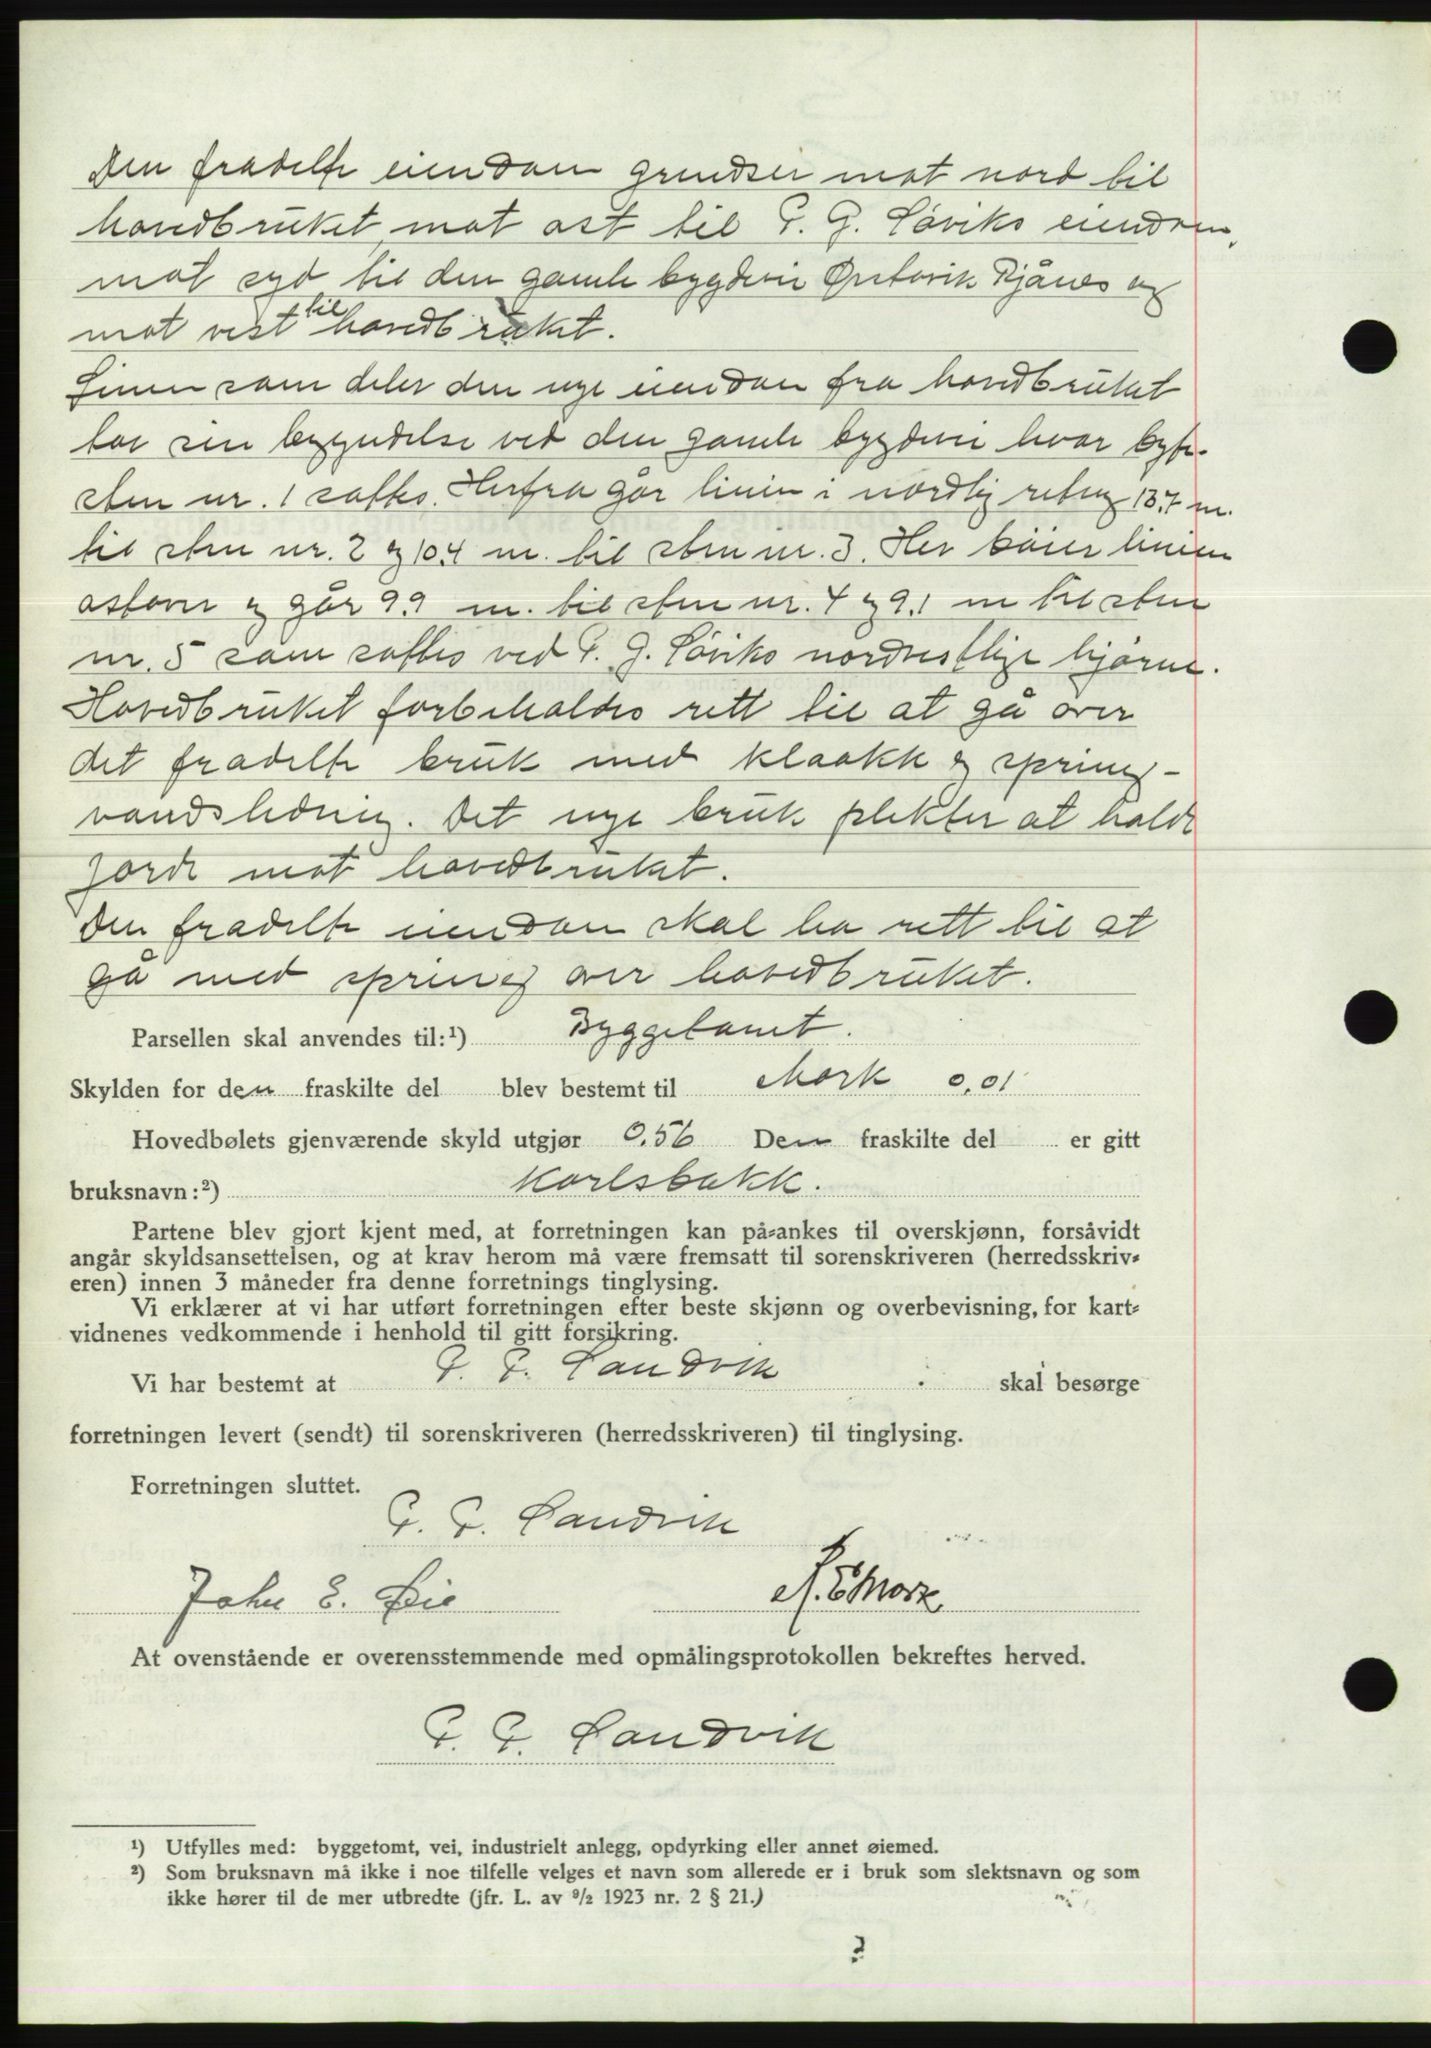 Den fradelte eiendom grendser mot nord til
hovedbruket, mot ost til P. G. Søviks eiendom,
mot syd til den gamle bygdevei Ørstavik Rjånes og
mot vest til hovedbruket.
Linien som deler den nye eiendom fra hovedbruket
tar sin begyndelse ved den gamle bygdevei hvor byte-
sten nr. 1 sattes. Herfra går linien i nordlig retng 13,7 m.
til sten nr. 2 og 10,4 m. til sten nr. 3. Her bøier linien
ostover og går 9,9 m. til sten nr. 4 og 9,1 m til sten
nr. 5 som sattes ved P. G. Søviks nordvestlige hjørne.
Hovedbruket forbeholdes rett til at gå over
det fradelte bruk med kloakk og spring-
vandsledning. Det nye bruk plikter at holde
gjerde mot hovedbruket.
Den fradelte eiendom skal ha rett til at
gå med spring over hovedbruket.
Parsellen skal anvendes til:¹) Byggetomt.
Skylden for den fraskilte del blev bestemt til Mork 0,01
Hovedbølets gjenværende skyld utgjør 0,56 Den fraskilte del er gitt
bruksnavn:²) Karlsbakk.
Partene blev gjort kjent med, at forretningen kan på-ankes til overskjønn, forsåvidt
angår skyldsansettelsen, og at krav herom må være fremsatt til sorenskriveren (herredsskriv-
eren) innen 3 måneder fra denne forretnings tinglysing.
Vi erklærer at vi har utført forretningen efter beste skjønn og overbevisning, for kart-
vidnenes vedkommende i henhold til gitt forsikring.
Vi har bestemt at P. P. Sandvik skal besørge
forretningen levert (sendt) til sorenskriveren (herredsskriveren) til tinglysing.
Forretningen sluttet.
P. P. Sandvik
John E. Øie
E Mork
At ovenstående er overensstemmende med opmålingsprotokollen bekreftes herved.
P. P. Sandvik
¹) Utfylles med: byggetomt, vei, industrielt anlegg, opdyrking eller annet øiemed.
²) Som bruksnavn må ikke i noe tilfelle velges et navn som allerede er i bruk som slektsnavn og som
ikke hører til de mer utbredte (jfr. L. av ⁹/₂ 1923 nr. 2 § 21.)